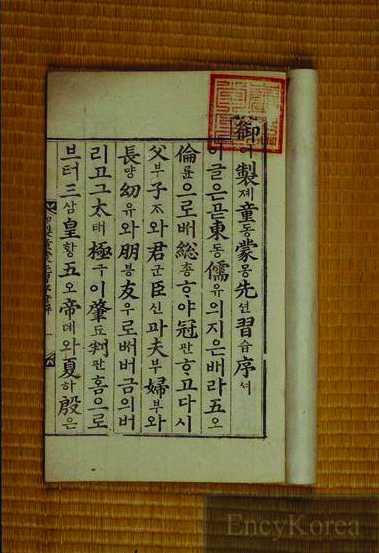 御어製졔童동蒙몽先션習습序셔
이글은곧東동儒유의지은배라五오
倫륜으로ᄡᅥ總총ᄒᆞ야冠관ᄒᆞ고다시
父부子ᄌᆞ와君군臣신과夫부婦부와
長댱幼유와朋붕友우로ᄡᅥ버금의버
리고그太태極극이肇됴判판홈으로
브터三삼皇황五오帝뎨와夏하殷은
EncyKorea